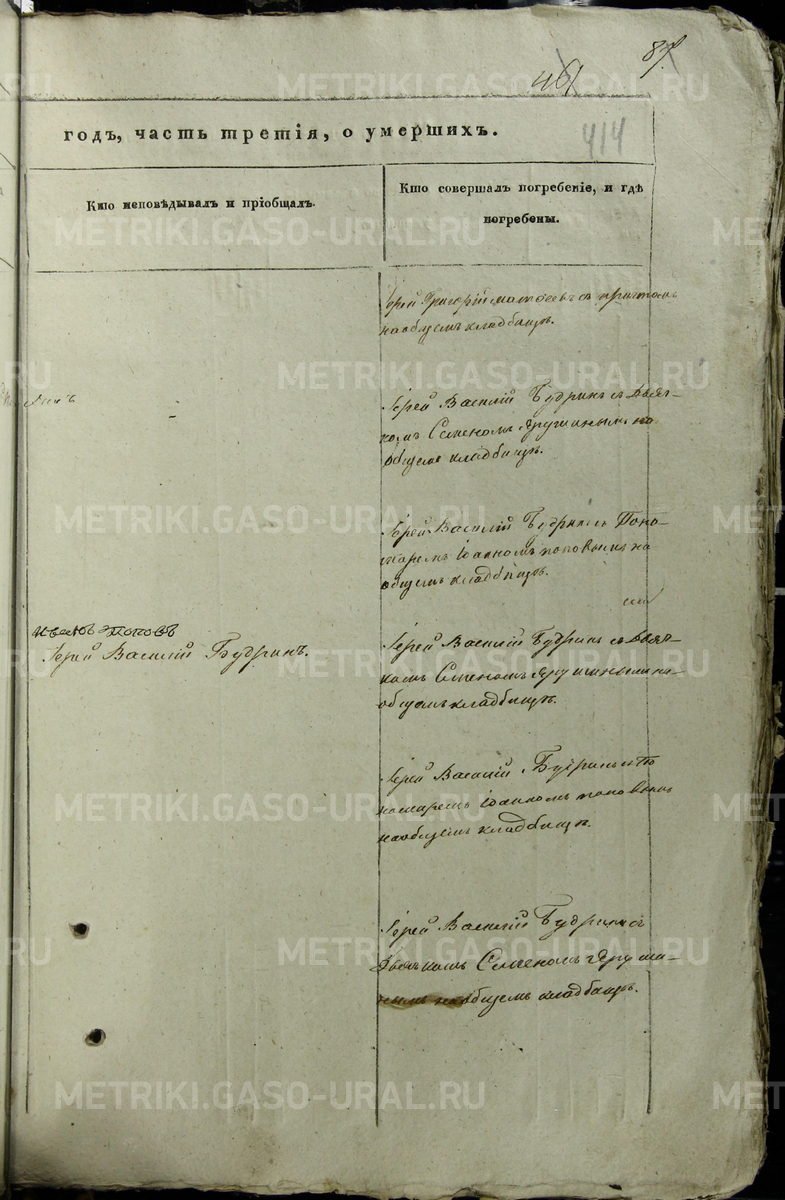 87.
461
414
годъ, часть третія, о умершихъ.
Кто исповѣдывалъ и пріобщалъ.
Кто совершалъ погребеніе, и гдѣ
погребены.
Іерей Григорій съ причтомъ
на общемъ кладбищѣ.
Іерей Василій Будринъ съ дьяч-
комъ Семеномъ Ярушинымъ на
общемъ кладбищѣ.
Іерей Василій Будринъ съ Поно-
маремъ Іоанномъ поповымъ на
общемъ кладбищѣ.
поповъ
Іерей Василій Будринъ.
Іерей Василій Будринъ съ дьяч-
комъ Семеномъ Ярушинымъ на
общемъ кладбищѣ.
Іерей Василій Будринъ съ По
номаремъ Іоанномъ поповымъ
на общемъ кладбищѣ.
Іерей Василій Будринъ съ
дьячкомъ Семеномъ Яруши-
нымъ на общемъ кладбищѣ.
METRIKI.GASO-URAL.RU